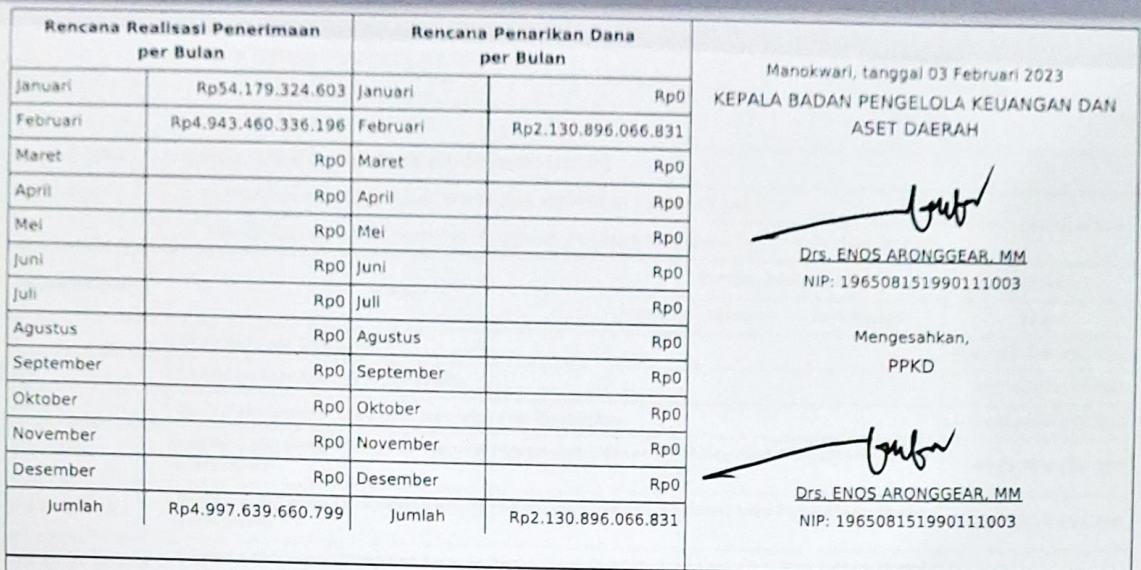 Rencana Realisasi Penerimaan
per Bulan
Rencana Penarikan Dana
per Bulan
Januari Rp54.179.324.603 Januari Rp0
Februari Rp4.943.460.336.196 Februari Rp2.130.896.066.831
Maret Rp0 Maret Rp0
April Rp0 April Rp0
Mei Rp0 Mei Rp0
Juni Rp0 Juni Rp0
Juli Rp0 Juli Rp0
Agustus Rp0 Agustus Rp0
September Rp0 September Rp0
Oktober Rp0 Oktober Rp0
November Rp0 November Rp0
Desember Rp0 Desember Rp0
Jumlah Rp4.997.639.660.799 Jumlah Rp2.130.896.066.831
Manokwari, tanggal 03 Februari 2023
KEPALA BADAN PENGELOLA KEUANGAN DAN
ASET DAERAH
Drs. ENOS ARONGGEAR, MM
NIP: 196508151990111003
Mengesahkan,
PPKD
Drs. ENOS ARONGGEAR, MM
NIP: 196508151990111003